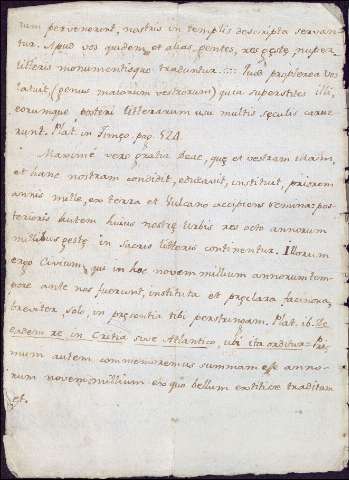 rum pervenerint, nostris in templis descripta servan
tur. Apud vos quidem, et alias gentes, res gestę nuper
litteris monumentisque traduntur. :::: Quod propterea vos
latuit (genus maiorum vestrorum) quia superstites illi,
eorumque posteri litterarum usu multis sęculis carue
runt. Plat. in Timęo pag. 524
Maximé vero gratia Deuę, quę et vestram urbem,
et hanc nostram condidit, educavit, instituit, priorem
annis mille, ex terra et Vulcano accipiens semina: pos
terioris autem huius nostrę Urbis res octo annorum
millibus gestę in sacris litteris continentur. Illorum
ergo Civium, qui in hoc novem millium annorum tem
pore ante nos fuerunt, instituta et pręclara facinora,
breviter solo, in pręsentia tibi perstringam. Plat. ib. De
eadem re in Critia sive Atlantico, ubi ita orditur = Pri
mum autem commemoremus summam esse anno
rum novem millium ex quo bellum extitisse traditum
est.